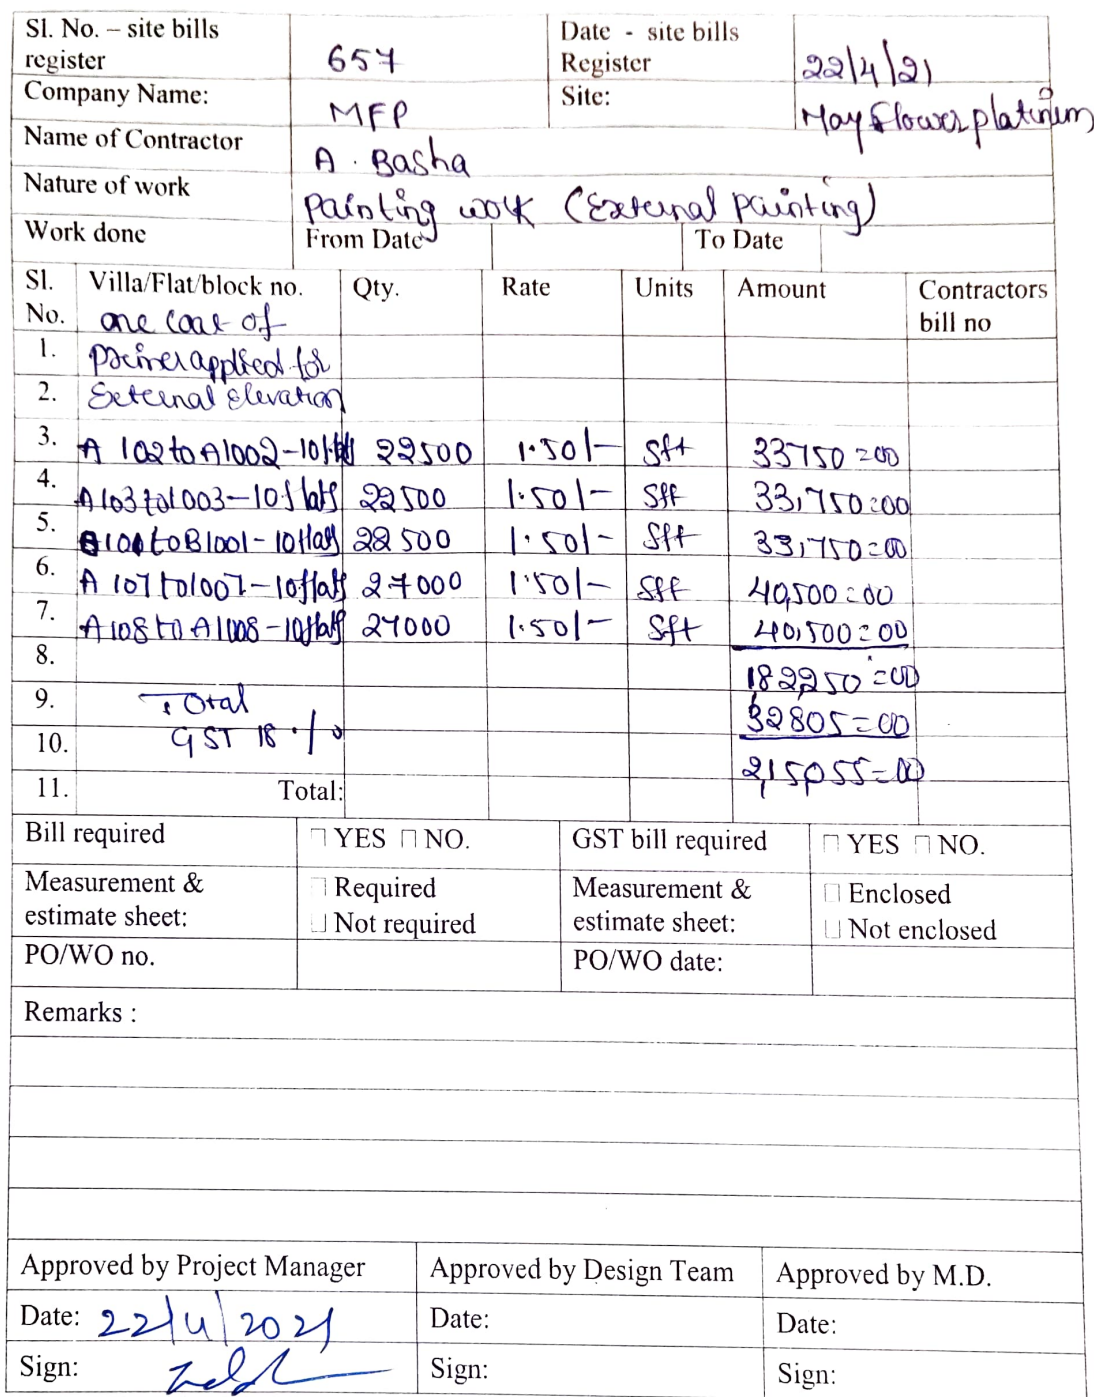 Sl. No. – site bills register 657 Date - site bills Register 22/4/21
Company Name: MFP Site: May Flower platinum
Name of Contractor A. Basha
Nature of work Painting work (External painting)
Work done From Date To Date
Sl. No. Villa/Flat/block no. Qty. Rate Units Amount Contractors bill no
one coat of
1. primer applied for
2. External elevation
3. A 102 to A1002-10 22500 1.50/- Sft 33750=00
4. A103 to 1003-10 flats 22500 1.50/- Sft 33,750=00
5. to B1001-10 flats 22500 1.50/- Sft 33,750=00
6. A 107 to 1007-10 flats 27000 1.50/- Sft 40,500=00
7. A108 to A1008-10 flats 27000 1.50/- Sft 40,500=00
8. 182250=00
9. Total 32805=00
10. GST 18%
11. Total: 215055=00
Bill required YES NO. GST bill required YES NO.
Measurement & estimate sheet: Required Not required Measurement & estimate sheet: Enclosed Not enclosed
PO/WO no. PO/WO date:
Remarks :
Approved by Project Manager Approved by Design Team Approved by M.D.
Date: 22/4/2021 Date: Date:
Sign: Sign: Sign: